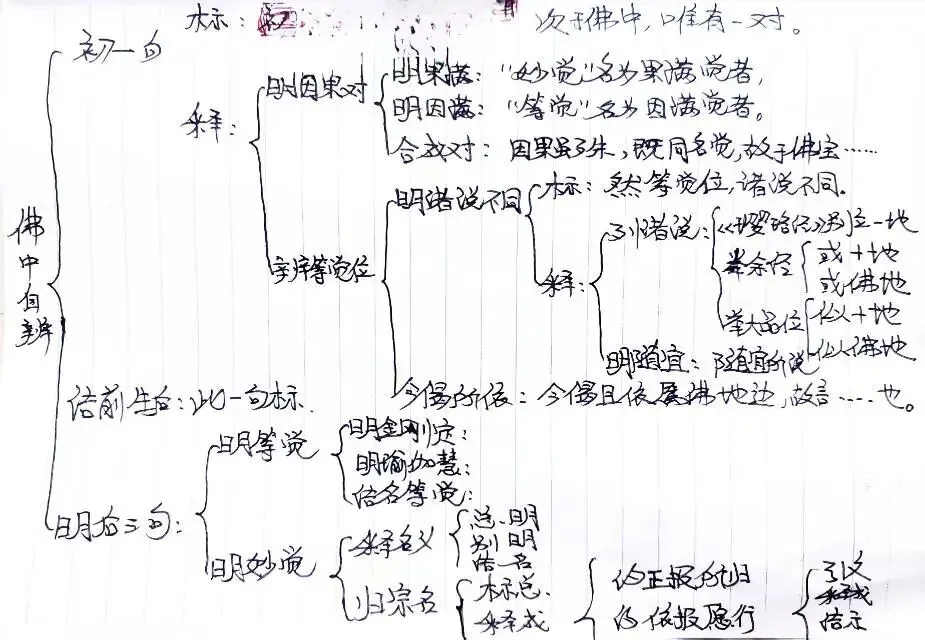 标：初
次于佛中，唯有一对。
初一句
释：
明因果对
明果满："妙觉"名为果满觉者，
明因满："等觉"名为因满觉者。
合成对：因果虽殊，既同名觉，故于佛宝……
佛中自辨
辨等觉位
明诸说不同
标：然等觉位，诸说不同.
释：
引诸说：
《璎珞经》别立一地
余经
或十地
或佛地
举大品位
似十地
似佛地
明随宜：随宜所说
今疏所依：今疏且依 佛地边，故言……也。
结前生后：此一句标.
明后三句：
明等觉
明金刚定：
明瑜伽慧：
结名等觉：
明妙觉
释名义
总 明
别 明
结 名
归宗名
标总.
释成
约正报所归
约依报愿行
引文
释成
指示